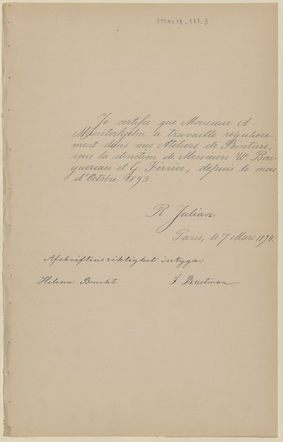 Je certifie que Monsieur A
a travaillé régulière-
ment dans mes Ateliers de Peinture,
sous la direction de Messieurs W. Bou-
guereau et G. Ferrier, depuis le mois
d'Octobre 1893.
R. Julian
Paris, le 7 Mars 1894.
Afskriftens riktighet intygar
Helena